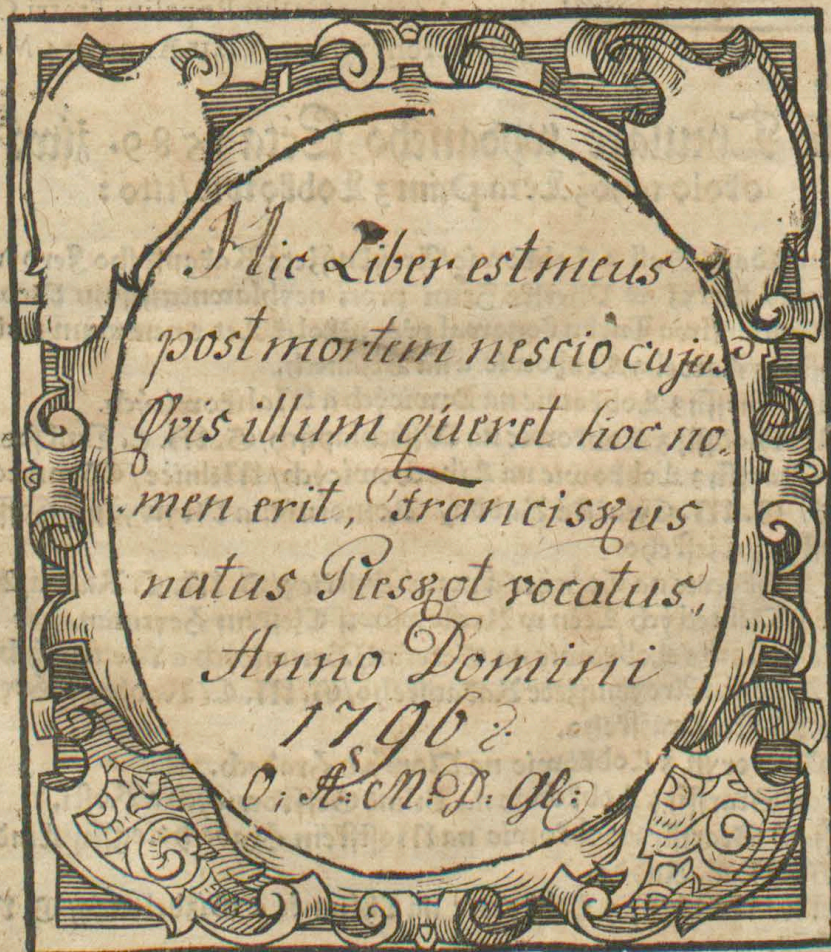 Hic Liber est meus
post mortem nescio cujus
Qvis illum qúeret hoc no:
men erit, Franciskus
natus Pleskot vocatus,
Anno Domini
1796
O: A: M: D: Gl: